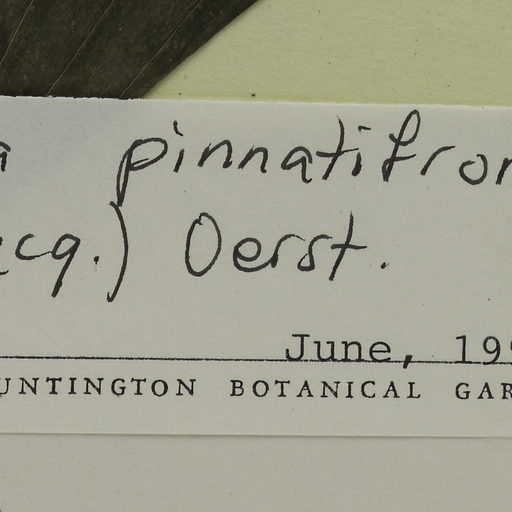 a pinnatifron
cq.) Oerst.
June, 199
UNTINGTON BOTANICAL GAR